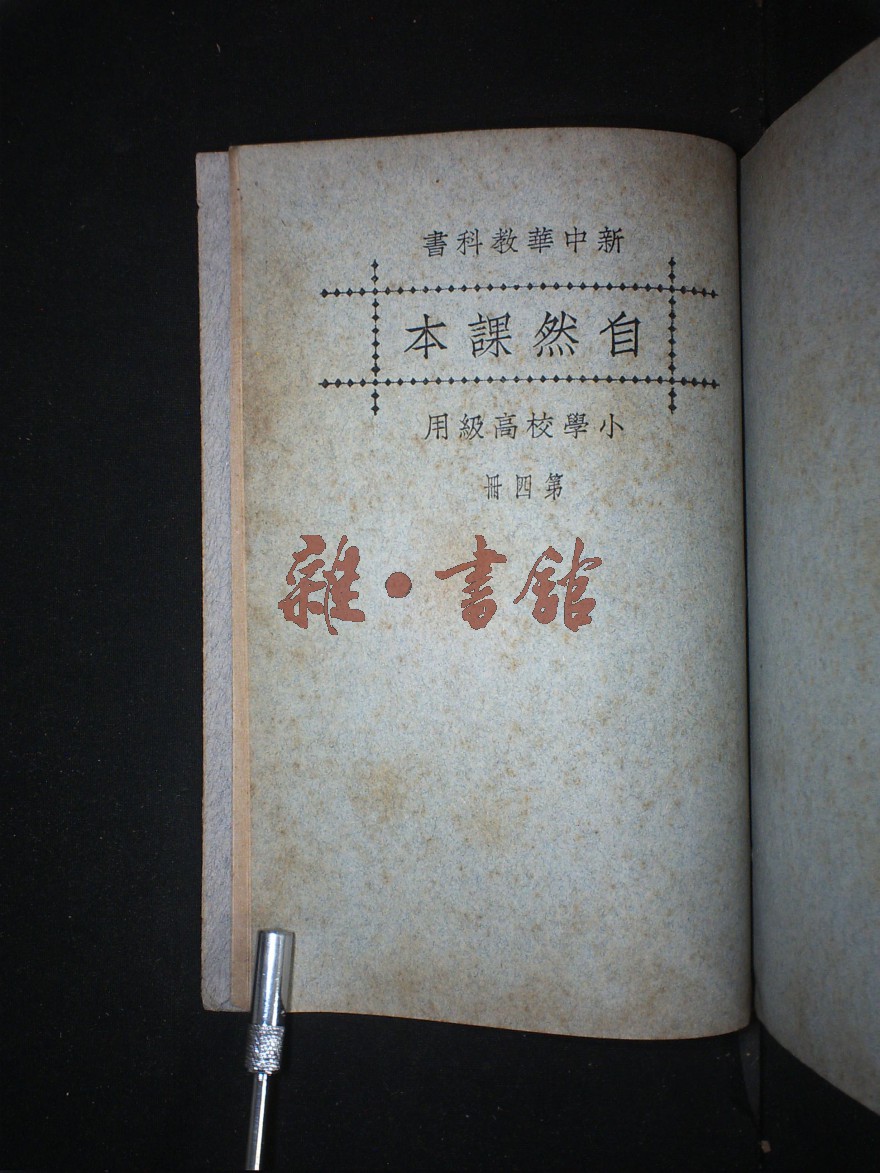 新中華教科書
自然課本
小學校高級用
第四冊
雜·書館